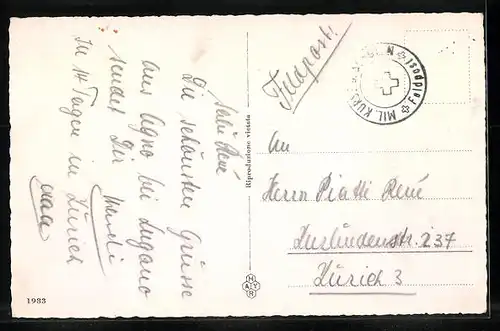 Feldpost.
Feldpost
MIL. KURS
Salü René
Die schönsten Grüsse
aus Agno bei Lugano
sendet Dir
In 14 Tagen in Zürich
Riproduzione vietata
An
Herrn Piatti René
Zurlindenstr. 237
Zürich 3
1983